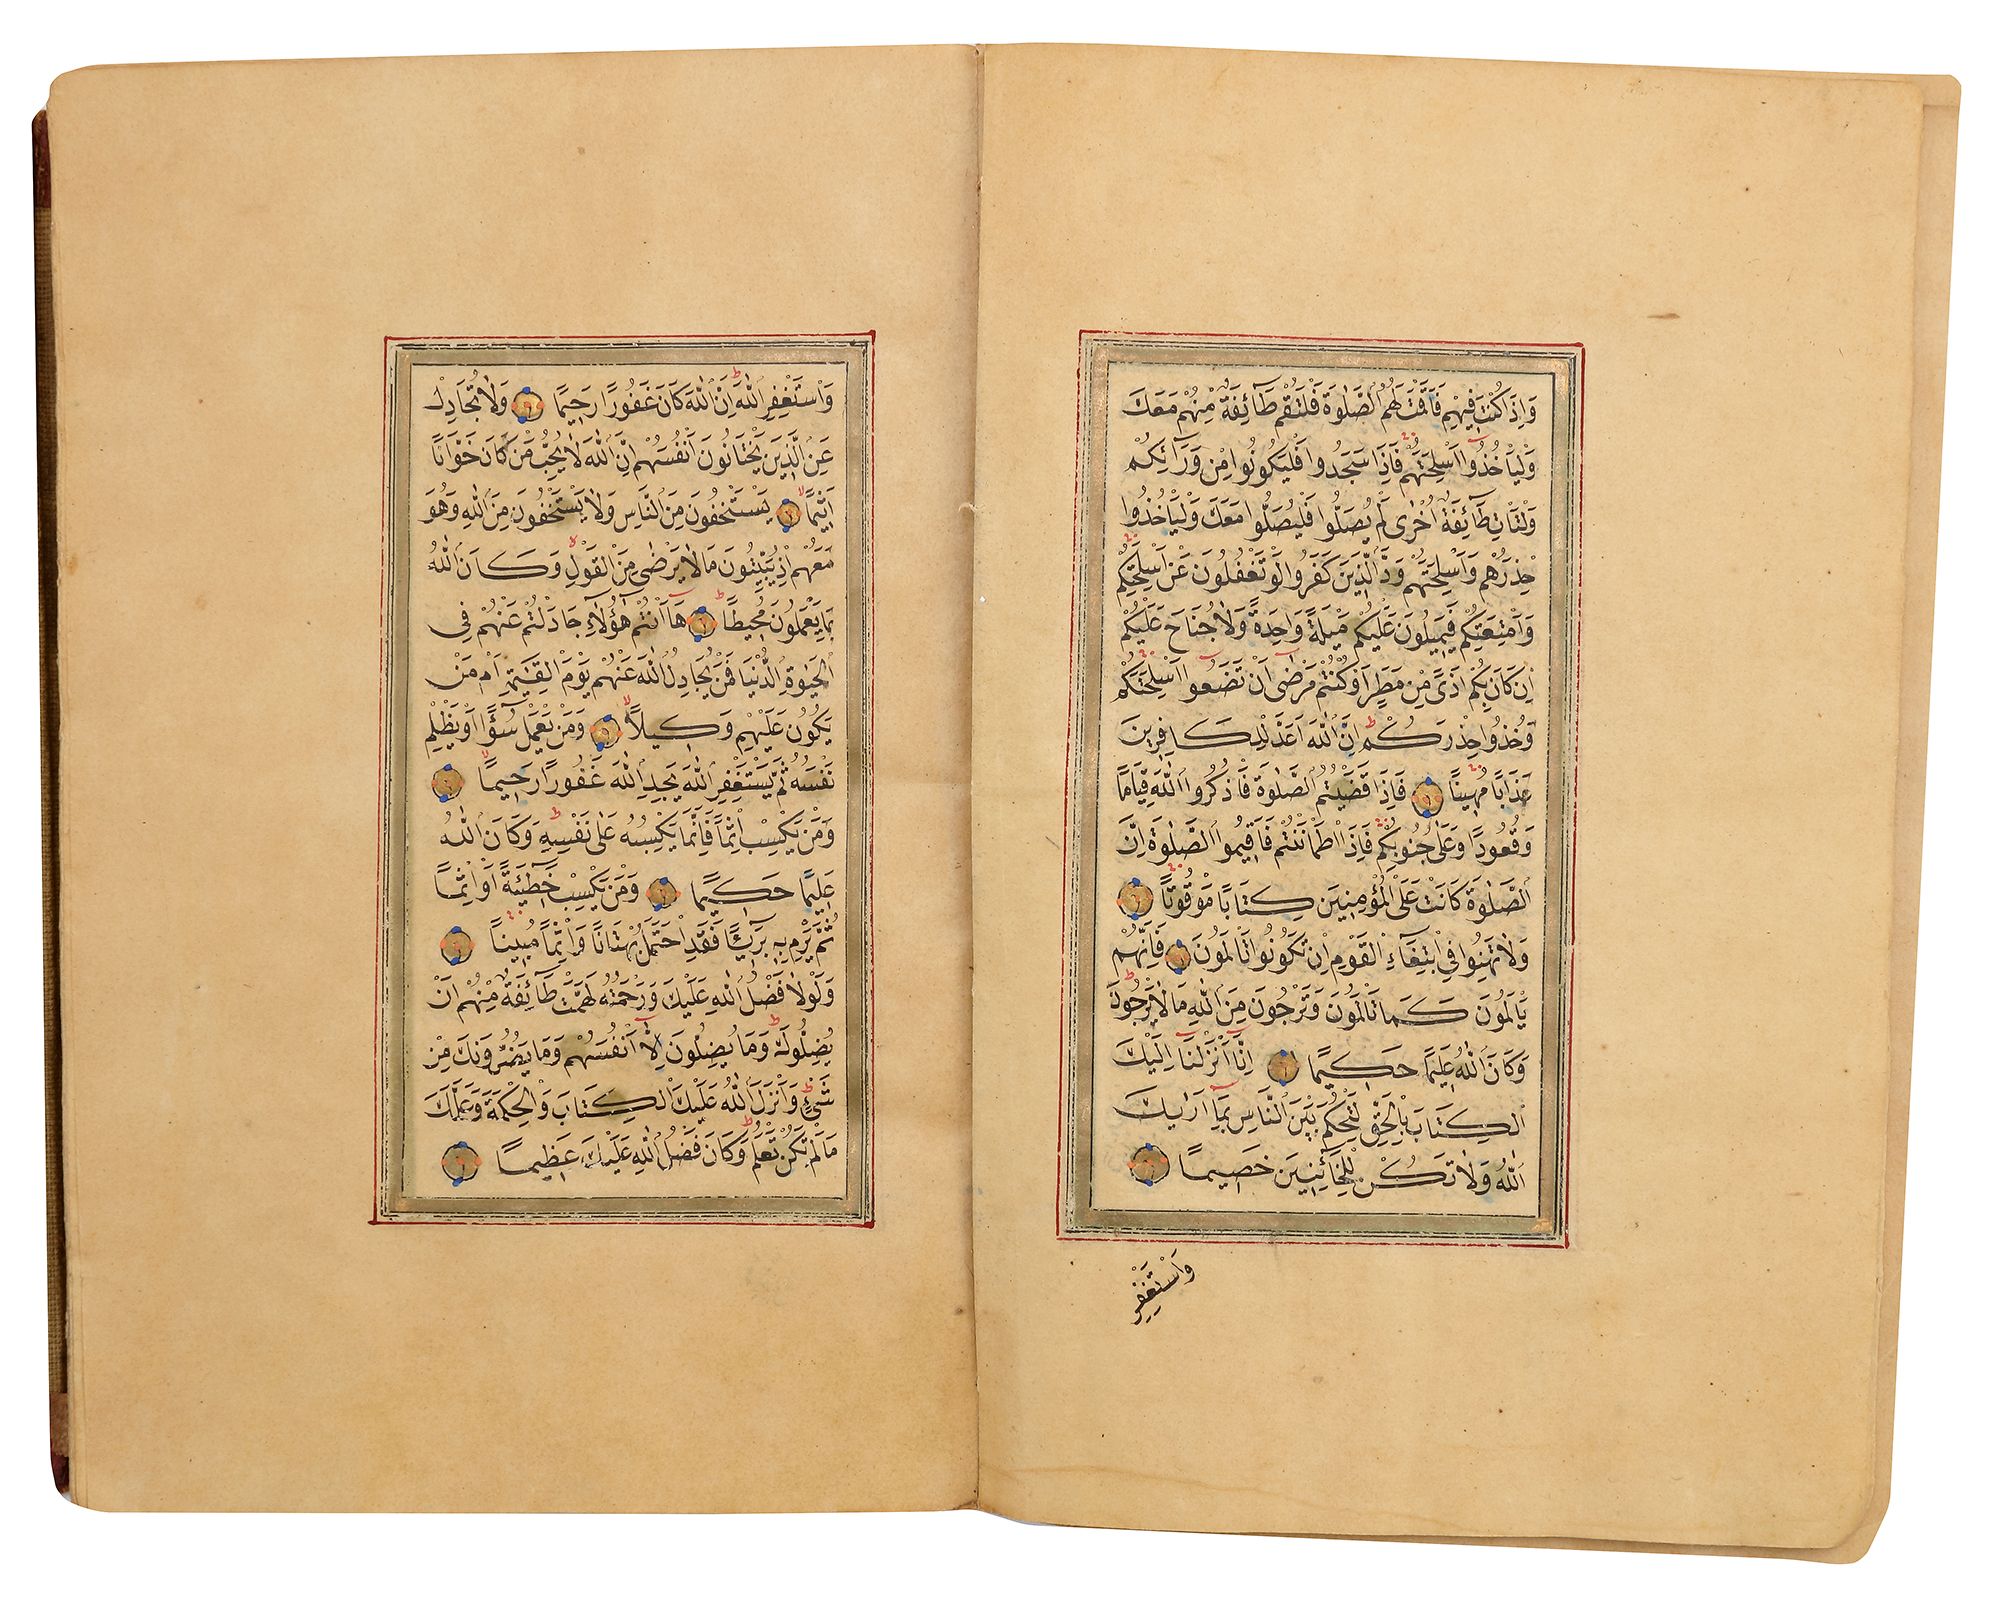 وَاِذَا كُنْتَ فِيهِمْ فَاَقَمْتَ لَهُمُ الصَّلٰوةَ فَلْتَقُمْ طَٓائِفَةٌ مِنْهُمْ مَعَكَ
وَلْيَأْخُذُٓوا اَسْلِحَتَهُمْ فَاِذَا سَجَدُوا فَلْيَكُونُوا مِنْ وَرَٓائِكُمْ
وَلْتَأْتِ طَٓائِفَةٌ اُخْرٰى لَمْ يُصَلُّوا فَلْيُصَلُّوا مَعَكَ وَلْيَأْخُذُوا
حِذْرَهُمْ وَاَسْلِحَتَهُمْ وَدَّ الَّذِينَ كَفَرُوا لَوْ تَغْفُلُونَ عَنْ اَسْلِحَتِكُمْ
وَاَمْتِعَتِكُمْ فَيَمِيلُونَ عَلَيْكُمْ مَيْلَةً وَاحِدَةً وَلَا جُنَاحَ عَلَيْكُمْ
اِنْ كَانَ بِكُمْ اَذًى مِنْ مَطَرٍ اَوْ كُنْتُمْ مَرْضٰٓى اَنْ تَضَعُٓوا اَسْلِحَتَكُمْ
وَخُذُوا حِذْرَكُمْ اِنَّ اللّٰهَ اَعَدَّ لِلْكَافِرِينَ
عَذَابًا مُهِينًا فَاِذَا قَضَيْتُمُ الصَّلٰوةَ فَاذْكُرُوا اللّٰهَ قِيَامًا
وَقُعُودًا وَعَلٰى جُنُوبِكُمْ فَاِذَا اطْمَأْنَنْتُمْ فَاَقِيمُوا الصَّلٰوةَ اِنَّ
الصَّلٰوةَ كَانَتْ عَلَى الْمُؤْمِنِينَ كِتَابًا مَوْقُوتًا
وَلَا تَهِنُوا فِي ابْتِغَٓاءِ الْقَوْمِ اِنْ تَكُونُوا تَأْلَمُونَ فَاِنَّهُمْ
يَأْلَمُونَ كَمَا تَأْلَمُونَ وَتَرْجُونَ مِنَ اللّٰهِ مَا لَا يَرْجُونَ
وَكَانَ اللّٰهُ عَلِيمًا حَكِيمًا اِنَّٓا اَنْزَلْنَٓا اِلَيْكَ
الْكِتَابَ بِالْحَقِّ لِتَحْكُمَ بَيْنَ النَّاسِ بِمَٓا اَرٰيكَ
اللّٰهُ وَلَا تَكُنْ لِلْخَٓائِنِينَ خَصِيمًا
وَاسْتَغْفِرِ
وَاسْتَغْفِرِ اللّٰهَ اِنَّ اللّٰهَ كَانَ غَفُورًا رَحِيمًا وَلَا تُجَادِلْ
عَنِ الَّذِينَ يَخْتَانُونَ اَنْفُسَهُمْ اِنَّ اللّٰهَ لَا يُحِبُّ مَنْ كَانَ خَوَّانًا
اَثِيمًا يَسْتَخْفُونَ مِنَ النَّاسِ وَلَا يَسْتَخْفُونَ مِنَ اللّٰهِ وَهُوَ
مَعَهُمْ اِذْ يُبَيِّتُونَ مَا لَا يَرْضٰى مِنَ الْقَوْلِ وَكَانَ اللّٰهُ
بِمَا يَعْمَلُونَ مُحِيطًا هَٓا اَنْتُمْ هٰٓؤُلَٓاءِ جَادَلْتُمْ عَنْهُمْ فِي
الْحَيٰوةِ الدُّنْيَا فَمَنْ يُجَادِلُ اللّٰهَ عَنْهُمْ يَوْمَ الْقِيٰمَةِ اَمْ مَنْ
يَكُونُ عَلَيْهِمْ وَكِيلًا وَمَنْ يَعْمَلْ سُٓوءًا اَوْ يَظْلِمْ
نَفْسَهُ ثُمَّ يَسْتَغْفِرِ اللّٰهَ يَجِدِ اللّٰهَ غَفُورًا رَحِيمًا
وَمَنْ يَكْسِبْ اِثْمًا فَاِنَّمَا يَكْسِبُهُ عَلٰى نَفْسِهِ وَكَانَ اللّٰهُ
عَلِيمًا حَكِيمًا وَمَنْ يَكْسِبْ خَطِٓيئَةً اَوْ اِثْمًا
ثُمَّ يَرْمِ بِهِ بَرِٓيئًا فَقَدِ احْتَمَلَ بُهْتَانًا وَاِثْمًا مُبِينًا
وَلَوْلَا فَضْلُ اللّٰهِ عَلَيْكَ وَرَحْمَتُهُ لَهَمَّتْ طَٓائِفَةٌ مِنْهُمْ اَنْ
يُضِلُّوكَ وَمَا يُضِلُّونَ اِلَّٓا اَنْفُسَهُمْ وَمَا يَضُرُّونَكَ مِنْ
شَيْءٍ وَاَنْزَلَ اللّٰهُ عَلَيْكَ الْكِتَابَ وَالْحِكْمَةَ وَعَلَّمَكَ
مَا لَمْ تَكُنْ تَعْلَمُ وَكَانَ فَضْلُ اللّٰهِ عَلَيْكَ عَظِيمًا